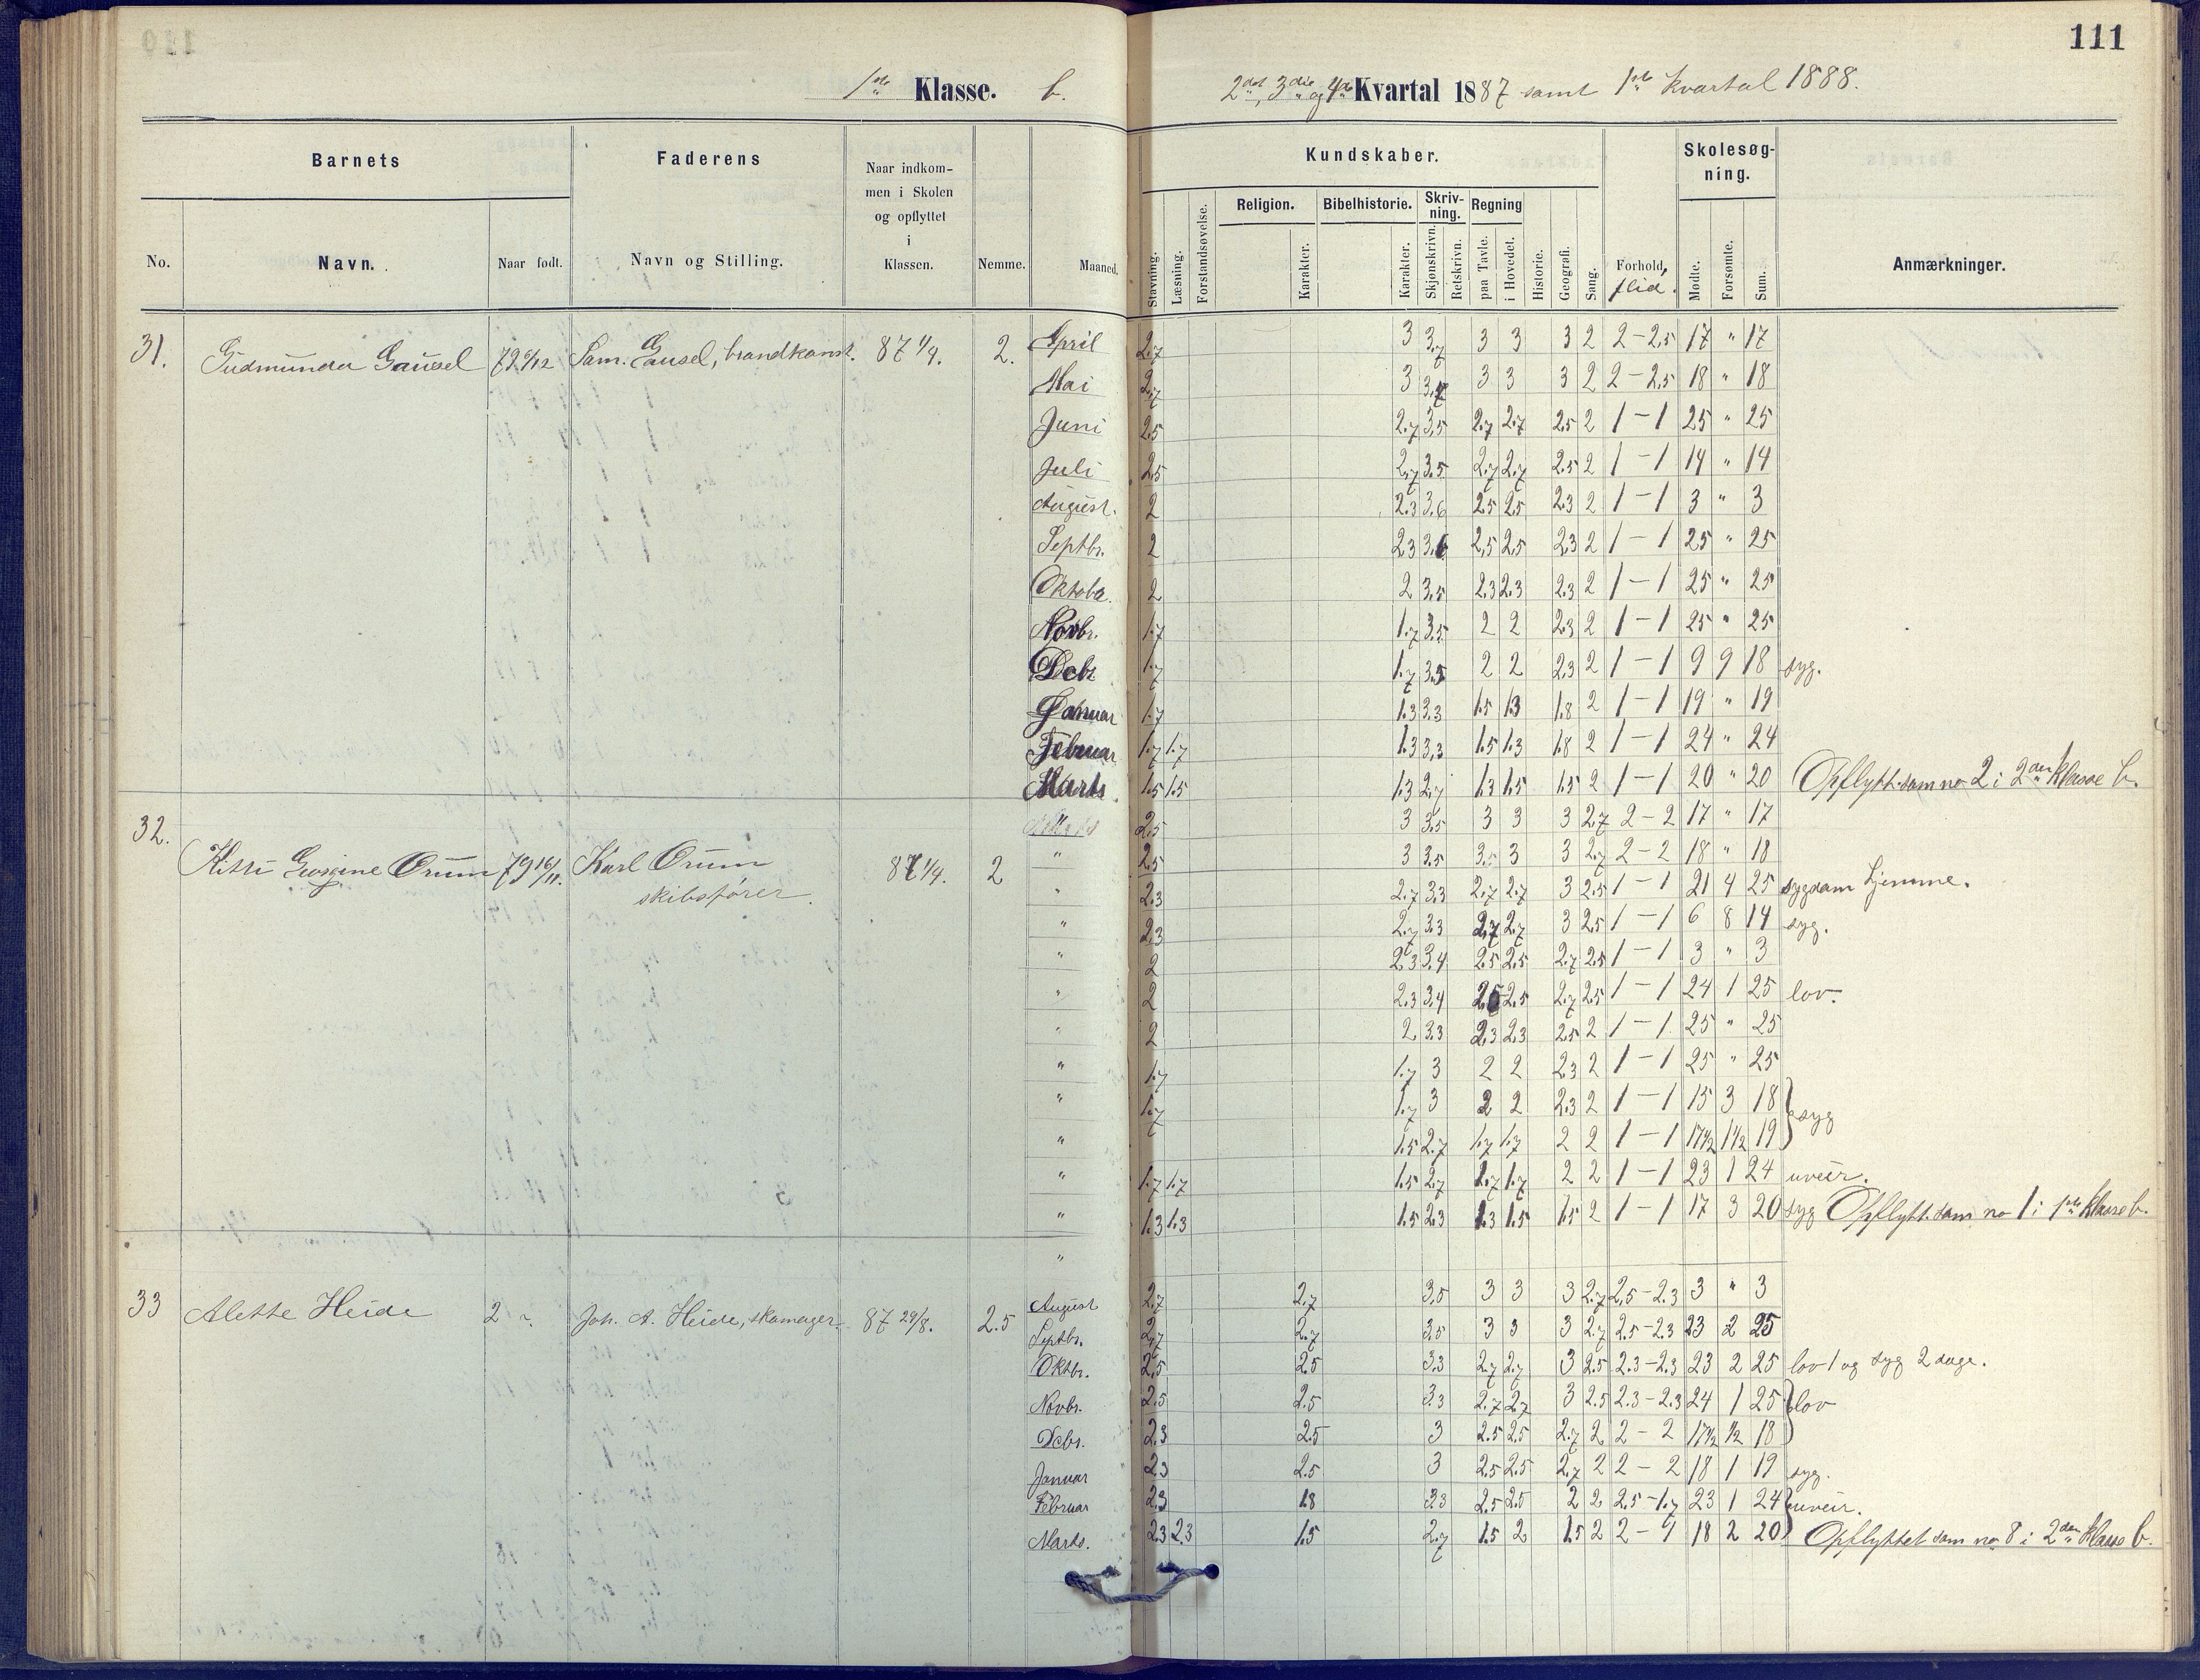 111
1ste Klasse. b. 2det, 3die og 4de Kvartal 1887 samt 1ste kvartal 1888.
Barnets Faderens Naar indkommen i Skolen og opflyttet i Klassen. Nemme. Maaned. Kundskaber. Skolesøgning. Anmærkninger.
No. Navn. Naar født. Navn og Stilling. Stavning. Læsning. Forstandsøvelse. Religion. Karakter. Bibelhistorie. Karakter. Skrivning. Skjønskrivn. Retskrivn. Regning paa Tavle. i Hovedet. Historie. Geografi. Sang. Forhold, flid. Mødte. Forsømte. Sum.
31. Gudmunda Gausel 79 6/12 Sam. Gausel, brandkonst. 87 1/4. 2. April 2.7 3 3.7 3 3 3 2 2-2.5 17 " 17
Mai 2.7 3 3.7 3 3 3 2 2-2.5 18 " 18
Juni 2.5 2.7 3.5 2.7 2.7 2.5 2 1-1 25 " 25
Juli 2.5 2.7 3.5 2.7 2.7 2.5 2 1-1 14 " 14
August. 2 2.3 3.6 2.5 2.5 2.3 2 1-1 3 " 3
Septbr. 2 2.3 3.6 2.5 2.5 2.3 2 1-1 25 " 25
Oktober. 2 2 3.5 2.3 2.3 2.3 2 1-1 25 " 25
Novbr. 1.7 1.7 3.5 2 2 2.3 2 1-1 25 " 25
Debr 1.7 1.7 3.5 2 2 2.3 2 1-1 9 9 18 syg.
Januar 1.7 1.3 3.3 1.5 1.3 1.8 2 1-1 19 " 19
Februar 1.7 1.7 1.3 3.3 1.5 1.3 1.8 2 1-1 24 " 24
Marts 1.5 1.5 1.3 2.7 1.3 1.5 1.5 2 1-1 20 " 20 Opflytt. som no 2 i 2den klasse b.
32. Kitti Georgine Orum 79 16/11. Karl Orum skibsfører. 87 1/4. 2 2.5 3 3.5 3 3 3 2.7 2-2 17 " 17
" 2.5 3 3.5 3.5 3 3 2.7 2-2 18 " 18
" 2.3 2.7 3.3 2.7 2.7 3 2.5 1-1 21 4 25 sygdom hjemme.
" 2.3 2.7 3.3 2.7 2.7 3 2.5 1-1 6 8 14 syg.
" 2 2.3 3.4 2.5 2.5 2.7 2.5 1-1 3 " 3
" 2 2.3 3.4 2.5 2.5 2.7 2.5 1-1 24 1 25 lov.
" 2 2 3.3 2.3 2.3 2.5 2 1-1 25 " 25
" 1.7 1.7 3 2 2 2.3 2 1-1 25 " 25
" 1.7 1.7 3 2 2 2.3 2 1-1 15 3 18 syg
" 1.5 2.7 1.7 1.7 2 2 1-1 17½ 1½ 19
" 1.7 1.7 1.5 2.7 1.7 1.7 2 2 1-1 23 1 24 uveir.
" 1.3 1.3 1.5 2.3 1.3 1.5 1.5 2 1-1 17 3 20 syg Opflytt. som no 1 i 1ste klasse b.
"
33 Alette Heide 2 Joh. A. Heide, skomager. 87 29/8. 2.5 August 2.7 2.7 3.5 3 3 3 2.7 2.5-2.3 3 " 3
Septbr. 2.7 2.7 3.5 3 3 3 2.7 2.5-2.3 23 2 25
Oktbr. 2.5 2.5 3.3 2.7 2.7 3 2.5 2.3-2.3 23 2 25 lov 1 og syg 2 dage.
Novbr. 2.5 2.5 3.3 2.7 2.7 3 2.5 2.3-2.3 24 1 25 lov
Debr. 2.3 2.5 3 2.5 2.5 2.7 2 2-2 17½ ½ 18
Januar 2.3 2.5 3 2.5 2.5 2.7 2 2-2 18 1 19 syg.
Februar 2.3 1.8 3.3 2.5 2.5 2 2 2.5-1.7 23 1 24 uveir.
Marts. 2.3 2.3 1.5 2.7 1.5 2 1.5 2 2-1 18 2 20 Opflyttet som no 8 i 2den klasse b.